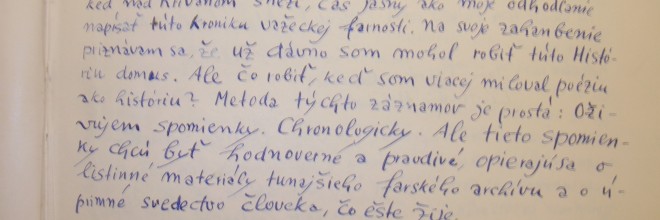 keď nad Kriváňom sneží, čas jasný ako moje odhodlanie
napísať túto kroniku važeckej farnosti. Na svoje zahanbenie
priznávam sa, že už dávno som mohol robiť túto Histó-
riu domus. Ale čo robiť, keď som viacej miloval poéziu
ako históriu? Metoda týchto záznamov je prostá: Oži-
vujem spomienky. Chronologicky. Ale tieto spomien-
ky chcú byť hodnoverné a pravdivé, opierajú sa o
listinné materiály tunajšieho farského archívu a o ú-
primné svedectvo človeka, čo ešte žije.